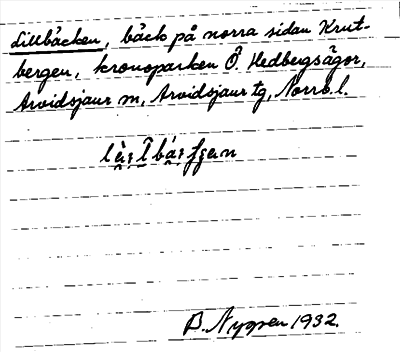 Lillbäcken, bäck på norra sidan Krut-
bergen, kronoparken Ö. Hedbergsågor,
Arvidsjaur sn, Arvidsjaur tg, Norrb. l.
B. Nygren 1932.